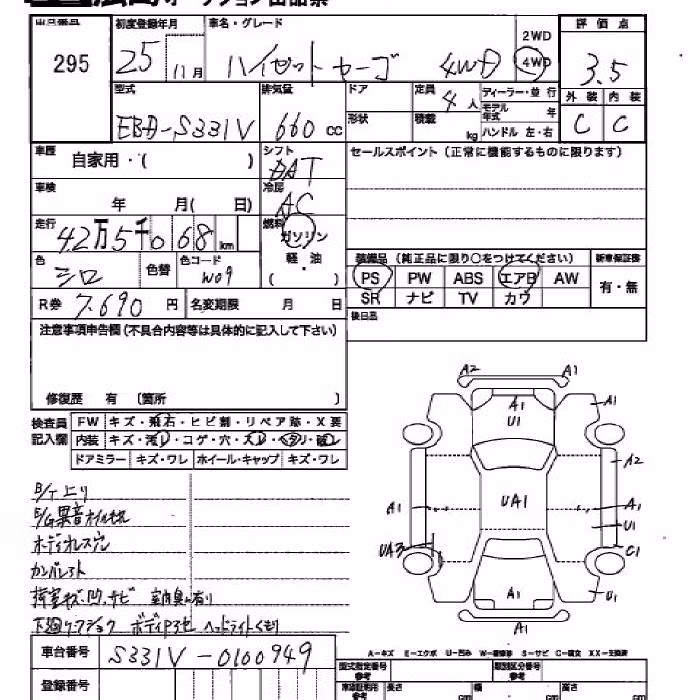 オークション出品票
出品番号 初度登録年月 車名・グレード 2WD 評価点
295 25 11月 ハイゼットカーゴ 4WD 4WD 3.5
型式 排気量 ドア 定員 4人 ディーラー・並行 外装 内装
EBD-S331V 660cc 形状 積載 kg モデル年式 年 C C
ハンドル 左・右
車歴 自家用・( ) シフト セールスポイント(正常に機能するものに限ります)
車検 年 月( 日) 冷房 AC
走行 42万5千068km 燃料 ガソリン
軽・油
色 シロ 色替 色コード W09 ( )
装備品(純正品に限り○をつけてください) 新車保証書
PS PW ABS エアB AW 有・無
SR ナビ TV カワ
R券 7.690円 名変期限 月 日
後日品
注意事項申告欄(不具合内容等は具体的に記入して下さい)
修復歴 有 〔箇所 〕
検査員記入欄 FW キズ・飛石・ヒビ割・リペア跡・X要
内装 キズ・汚レ・コゲ・穴・スレ・ヘタリ・破レ
ドアミラー キズ・ワレ ホイール・キャップ キズ・ワレ
A2 A1
A1 U1 A1
A2
A1 UA1 A1
U1
UA3 C1
A1 U1
A1
E/G異音オイルモレ
下廻り
ボディ
ヘッドライトくもり
A-キズ E-エクボ U-凹み W-補修跡 S-サビ C-腐食 XX-交換済
車台番号 S331V-0100949
型式指定番号 参考 類別区分番号 参考
登録番号 車庫証明用 参考 長さ cm 幅 cm 高さ cm